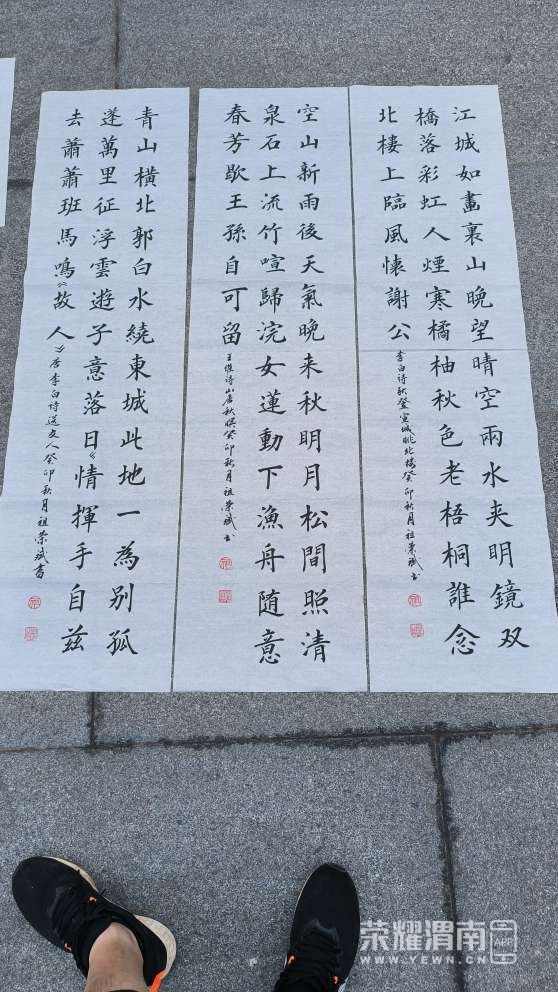 江城如畫裏山晚望晴空兩水夹明鏡双
橋落彩虹人煙寒橘柚秋色老梧桐誰念
北樓上臨風懷謝公
李白诗秋登宣城眺北楼癸卯秋月祖荣斌书
空山新雨後天氣晚来秋明月松間照清
泉石上流竹喧歸浣女蓮動下漁舟随意
春芳歇王孫自可留
王维诗山居秋暝癸卯秋月祖荣斌书
青山横北郭白水繞東城此地一為别孤
蓬萬里征浮雲遊子意落日〻情揮手自兹
去蕭蕭班馬鳴〻故人〻
唐李白诗送友人癸卯秋月祖荣斌書
荣耀渭南 APP
WWW.YEWN.CN